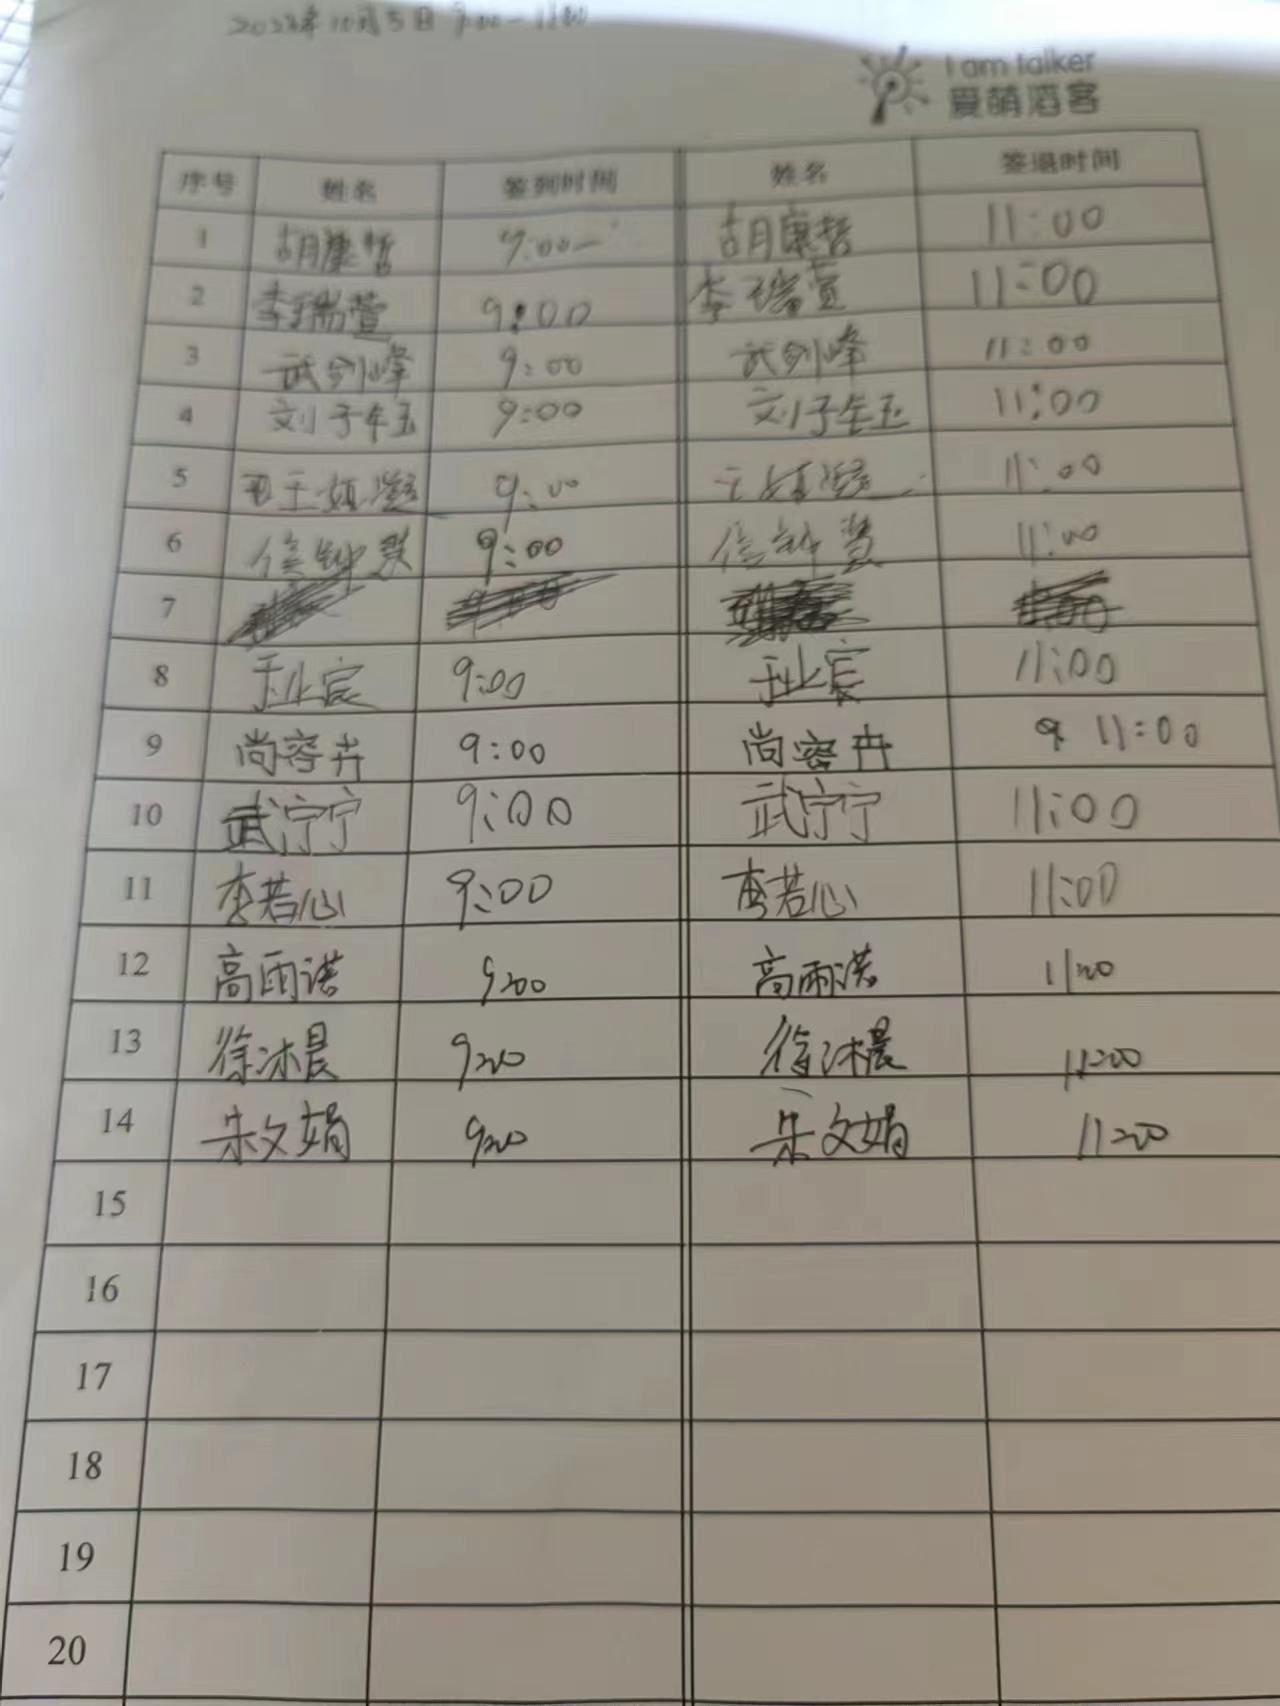 2023年10月5日 9:00-11:00
I am talker
爱萌滔客
序号 姓名 签到时间 姓名 签退时间
1 胡康哲 9:00 胡康哲 11:00
2 李瑞萱 9:00 李瑞萱 11:00
3 武剑峰 9:00 武剑峰 11:00
4 刘子钰 9:00 刘子钰 11:00
5 9:00 11:00
6 9:00 11:00
7
8 于业宸 9:00 于业宸 11:00
9 尚容卉 9:00 尚容卉 11:00
10 武宁宁 9:00 武宁宁 11:00
11 李若心 9:00 李若心 11:00
12 高雨诺 9:00 高雨诺 11:00
13 徐沐晨 9:00 徐沐晨 11:00
14 朱文娟 9:00 朱文娟 11:00
15
16
17
18
19
20